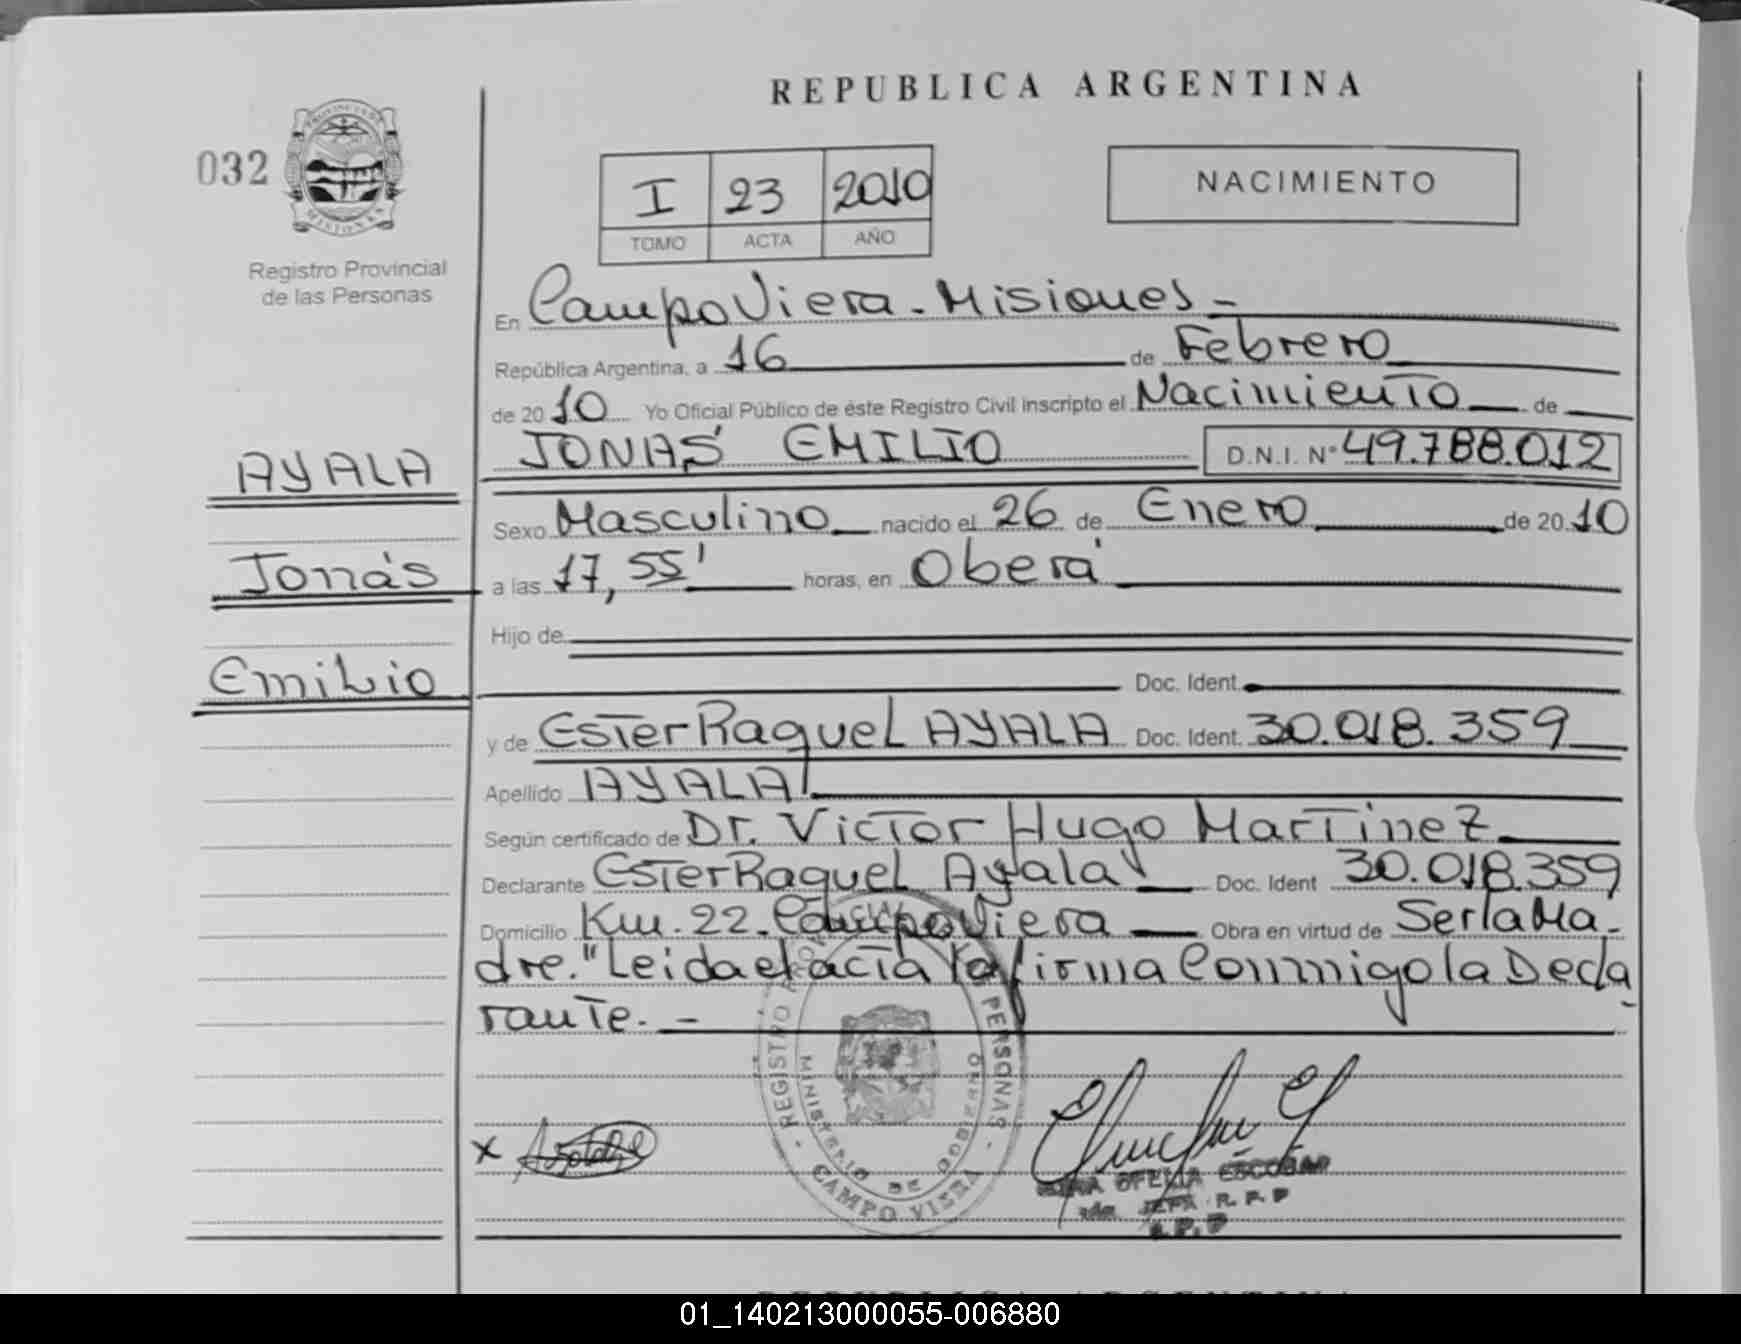 REPUBLICA ARGENTINA
032
PROVINCIA DE
MISIONES
Registro Provincial
de las Personas
I 23 2010
TOMO ACTA AÑO
NACIMIENTO
En Campo Viera - Misiones -
República Argentina, a 16 de Febrero
de 20 10 Yo Oficial Público de éste Registro Civil inscripto el Nacimiento de
AYALA JONÁS EMILIO D.N.I. Nº 49.788.012
Sexo Masculino nacido el 26 de Enero de 20 10
Jonás a las 17,55' horas, en Oberá
Hijo de
Emilio Doc. Ident.
y de Ester Raquel AYALA Doc. Ident. 30.018.359
Apellido AYALA
Según certificado de Dr. Victor Hugo Martinez
Declarante Ester Raquel Ayala Doc. Ident 30.018.359
Domicilio Km. 22 - Campo Viera Obra en virtud de Ser la Ma-
dre. "Leida el acta la firma Conmigo la Decla
rante. -
REGISTRO PROVINCIAL PERSONAS
MINISTERIO DE GOBIERNO
CAMPO VIERA
x
OFELIA ESCOBAR
JEFA R. P. P
01_140213000055-006880